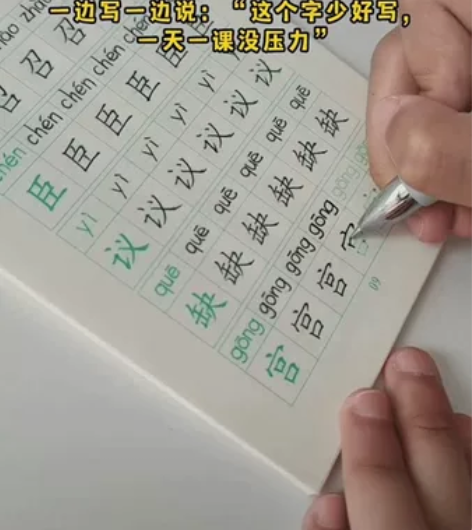 一边写一边说：“这个字少好写，
一天一课没压力”
zhāo
召 召 召
chén chén chén chén chén
臣 臣 臣 臣 臣 臣
yì yì yì yì yì
议 议 议 议 议 议
quē quē quē quē quē quē
缺 缺 缺 缺 缺 缺
gōng gōng gōng gōng gōng
宫 宫 宫